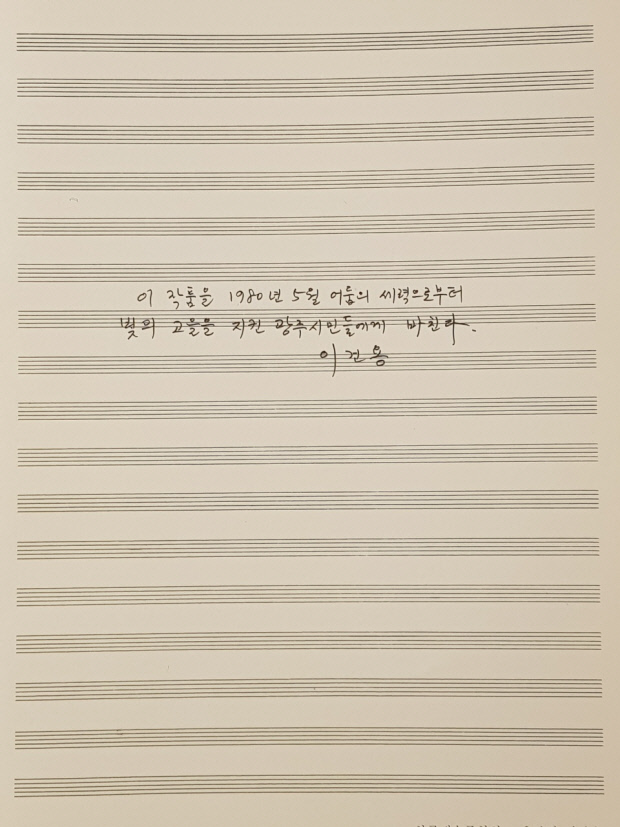 이 작품을 1980년 5월 어둠의 세력으로부터
빛의 고을을 지킨 광주시민들에게 바친다.
이건용